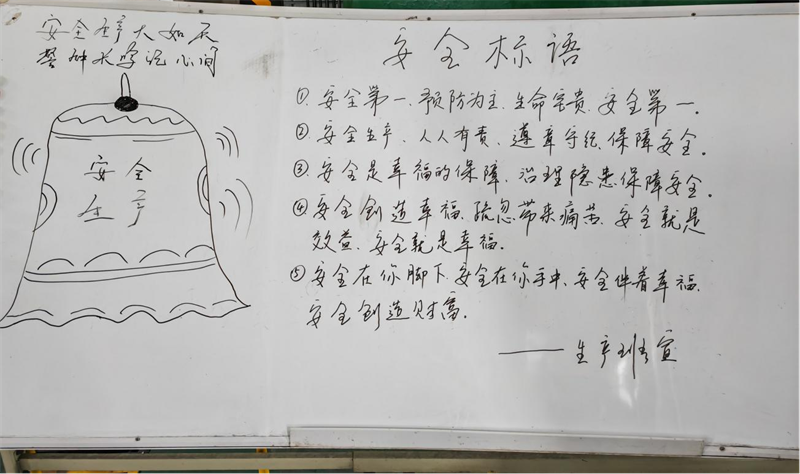 安全生产大如天
警钟长鸣记心间
安全
生产
安全标语
①.安全第一.预防为主.生命宝贵.安全第一.
②.安全生产、人人有责、遵章守纪.保障安全.
③.安全是幸福的保障、治理隐患保障安全.
④.安全创造幸福.疏忽带来痛苦.安全就是
效益.安全就是幸福.
⑤.安全在你脚下.安全在你手中.安全伴着幸福.
安全创造财富.
——生产班 宣